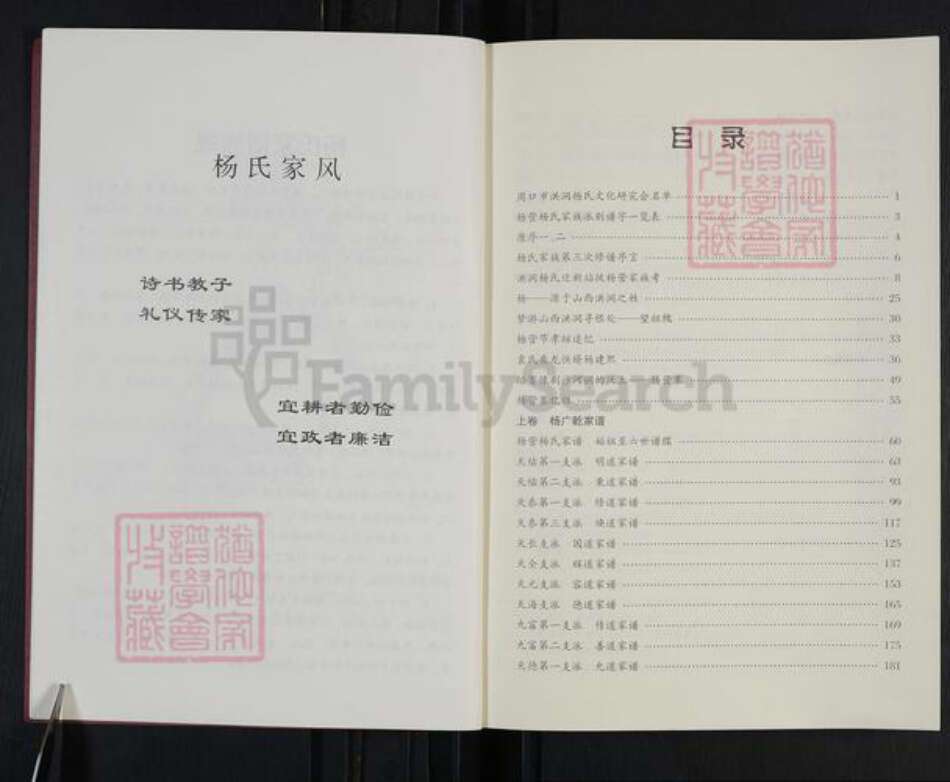 杨氏家风
诗书教子
礼仪传家
宜耕者勤俭
宜政者廉洁
FamilySearch
目录
周口市洪洞杨氏文化研究会名单 1
杨营杨氏家族派别谱字一览表 3
原序一、二 4
杨氏家族第三次修谱序言 6
洪洞杨氏迁新站镇杨营家族考 8
杨——源于山西洪洞之姓 25
梦游山西洪洞寻根处——望祖槐 30
杨营节孝祠追忆 33
袁氏 杨建熙 36
49
55
上卷 杨广乾家谱
杨营杨氏家谱 始祖至六世谱牒 60
天佑第一支派 明道家谱 63
天佑第二支派 秉道家谱 93
天恭第一支派 修道家谱 99
天恭第三支派 焕道家谱 117
天长支派 国道家谱 125
天全支派 辉道家谱 137
天元支派 容道家谱 153
天海支派 德道家谱 165
九富第一支派 修道家谱 169
九富第二支派 善道家谱 175
天德第一支派 允道家谱 181